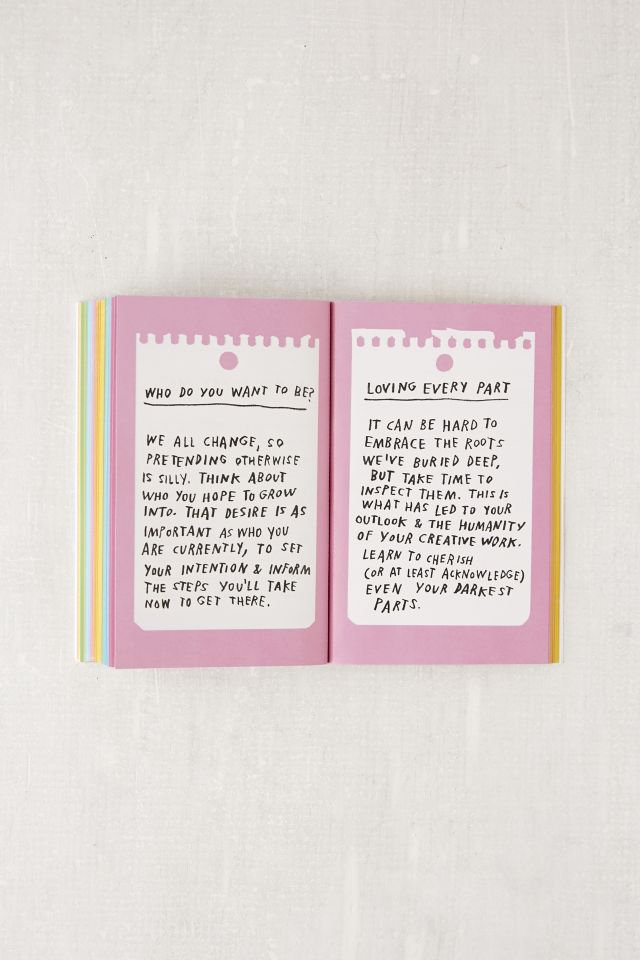 WHO DO YOU WANT TO BE?
WE ALL CHANGE, SO
PRETENDING OTHERWISE
IS SILLY. THINK ABOUT
WHO YOU HOPE TO GROW
INTO. THAT DESIRE IS AS
IMPORTANT AS WHO YOU
ARE CURRENTLY, TO SET
YOUR INTENTION & INFORM
THE STEPS YOU'LL TAKE
NOW TO GET THERE.
LOVING EVERY PART
IT CAN BE HARD TO
EMBRACE THE ROOTS
WE'VE BURIED DEEP,
BUT TAKE TIME TO
INSPECT THEM. THIS IS
WHAT HAS LED TO YOUR
OUTLOOK & THE HUMANITY
OF YOUR CREATIVE WORK.
LEARN TO CHERISH
(OR AT LEAST ACKNOWLEDGE)
EVEN YOUR DARKEST
PARTS.